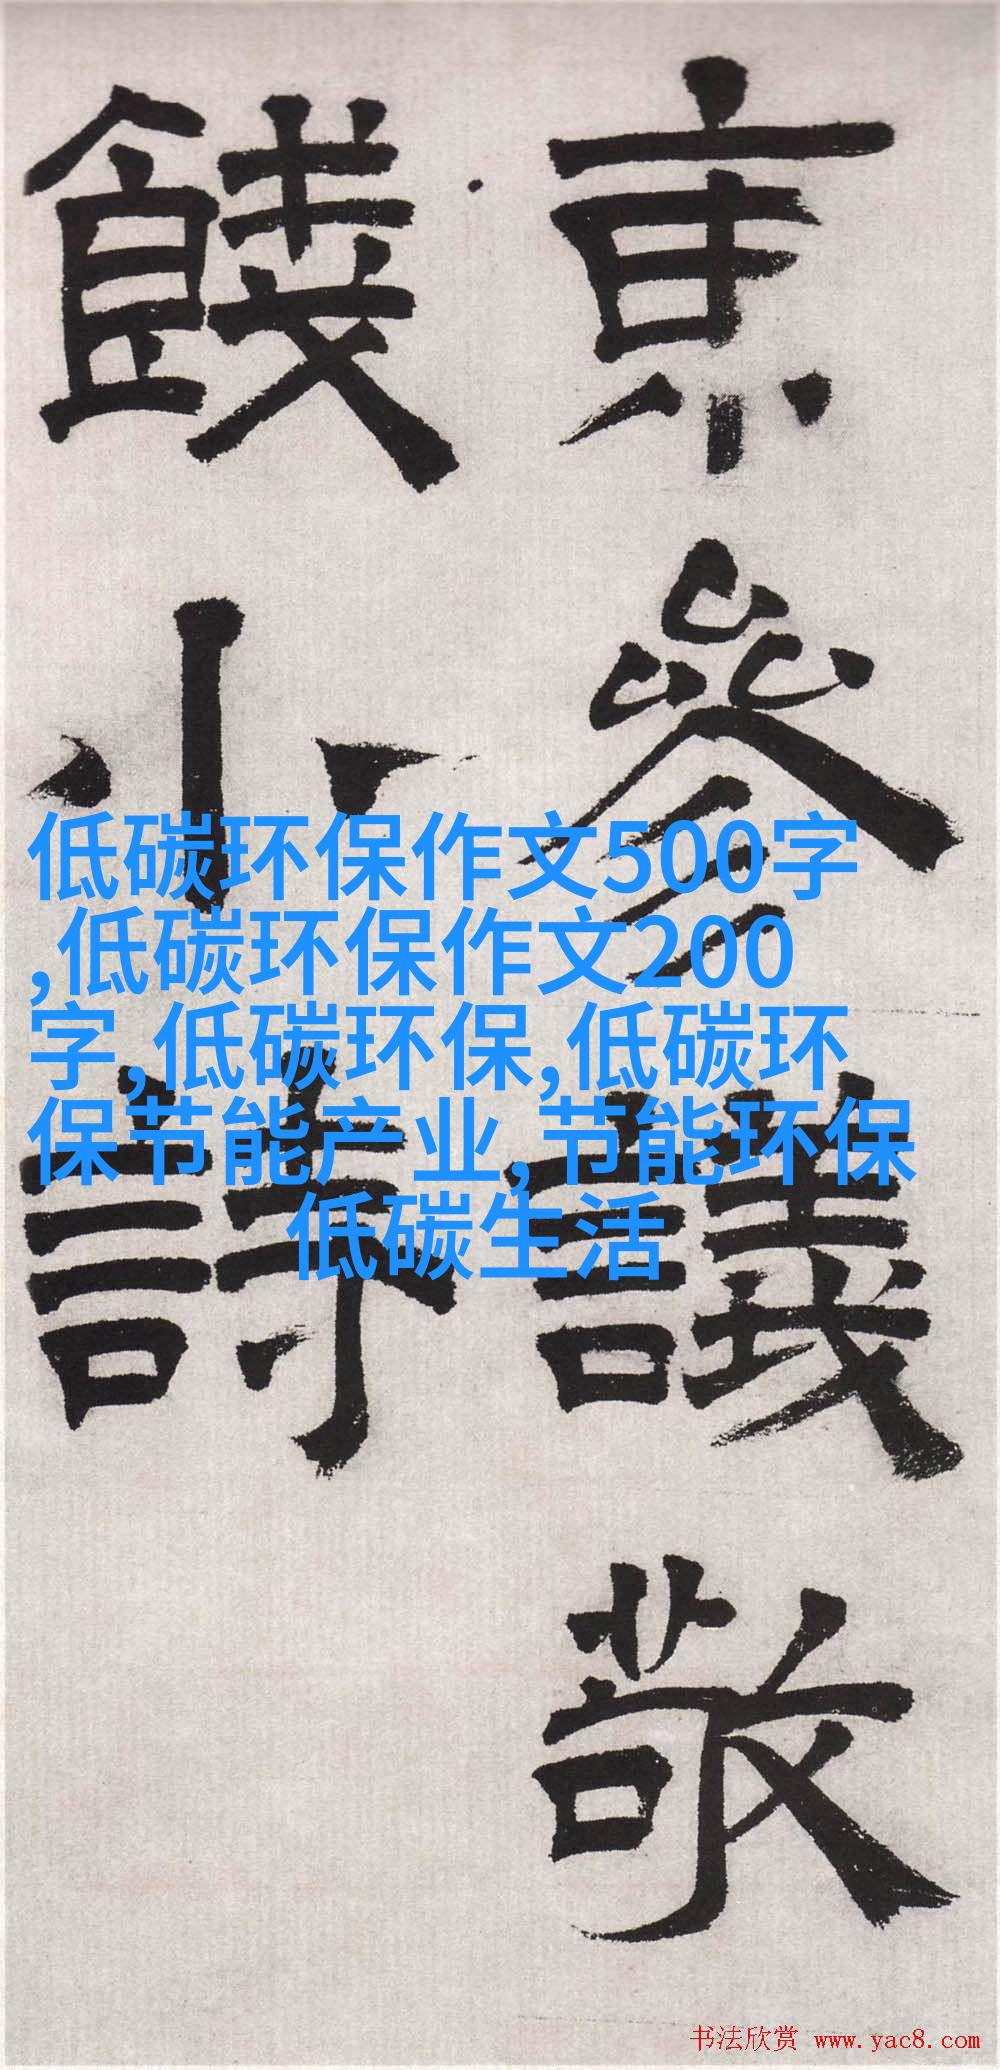 京參議敬
餞小詩
低碳环保作文500字
,低碳环保作文200
字,低碳环保,低碳环
保节能产业,节能环保
低碳生活
书法欣赏 www.yac8.com